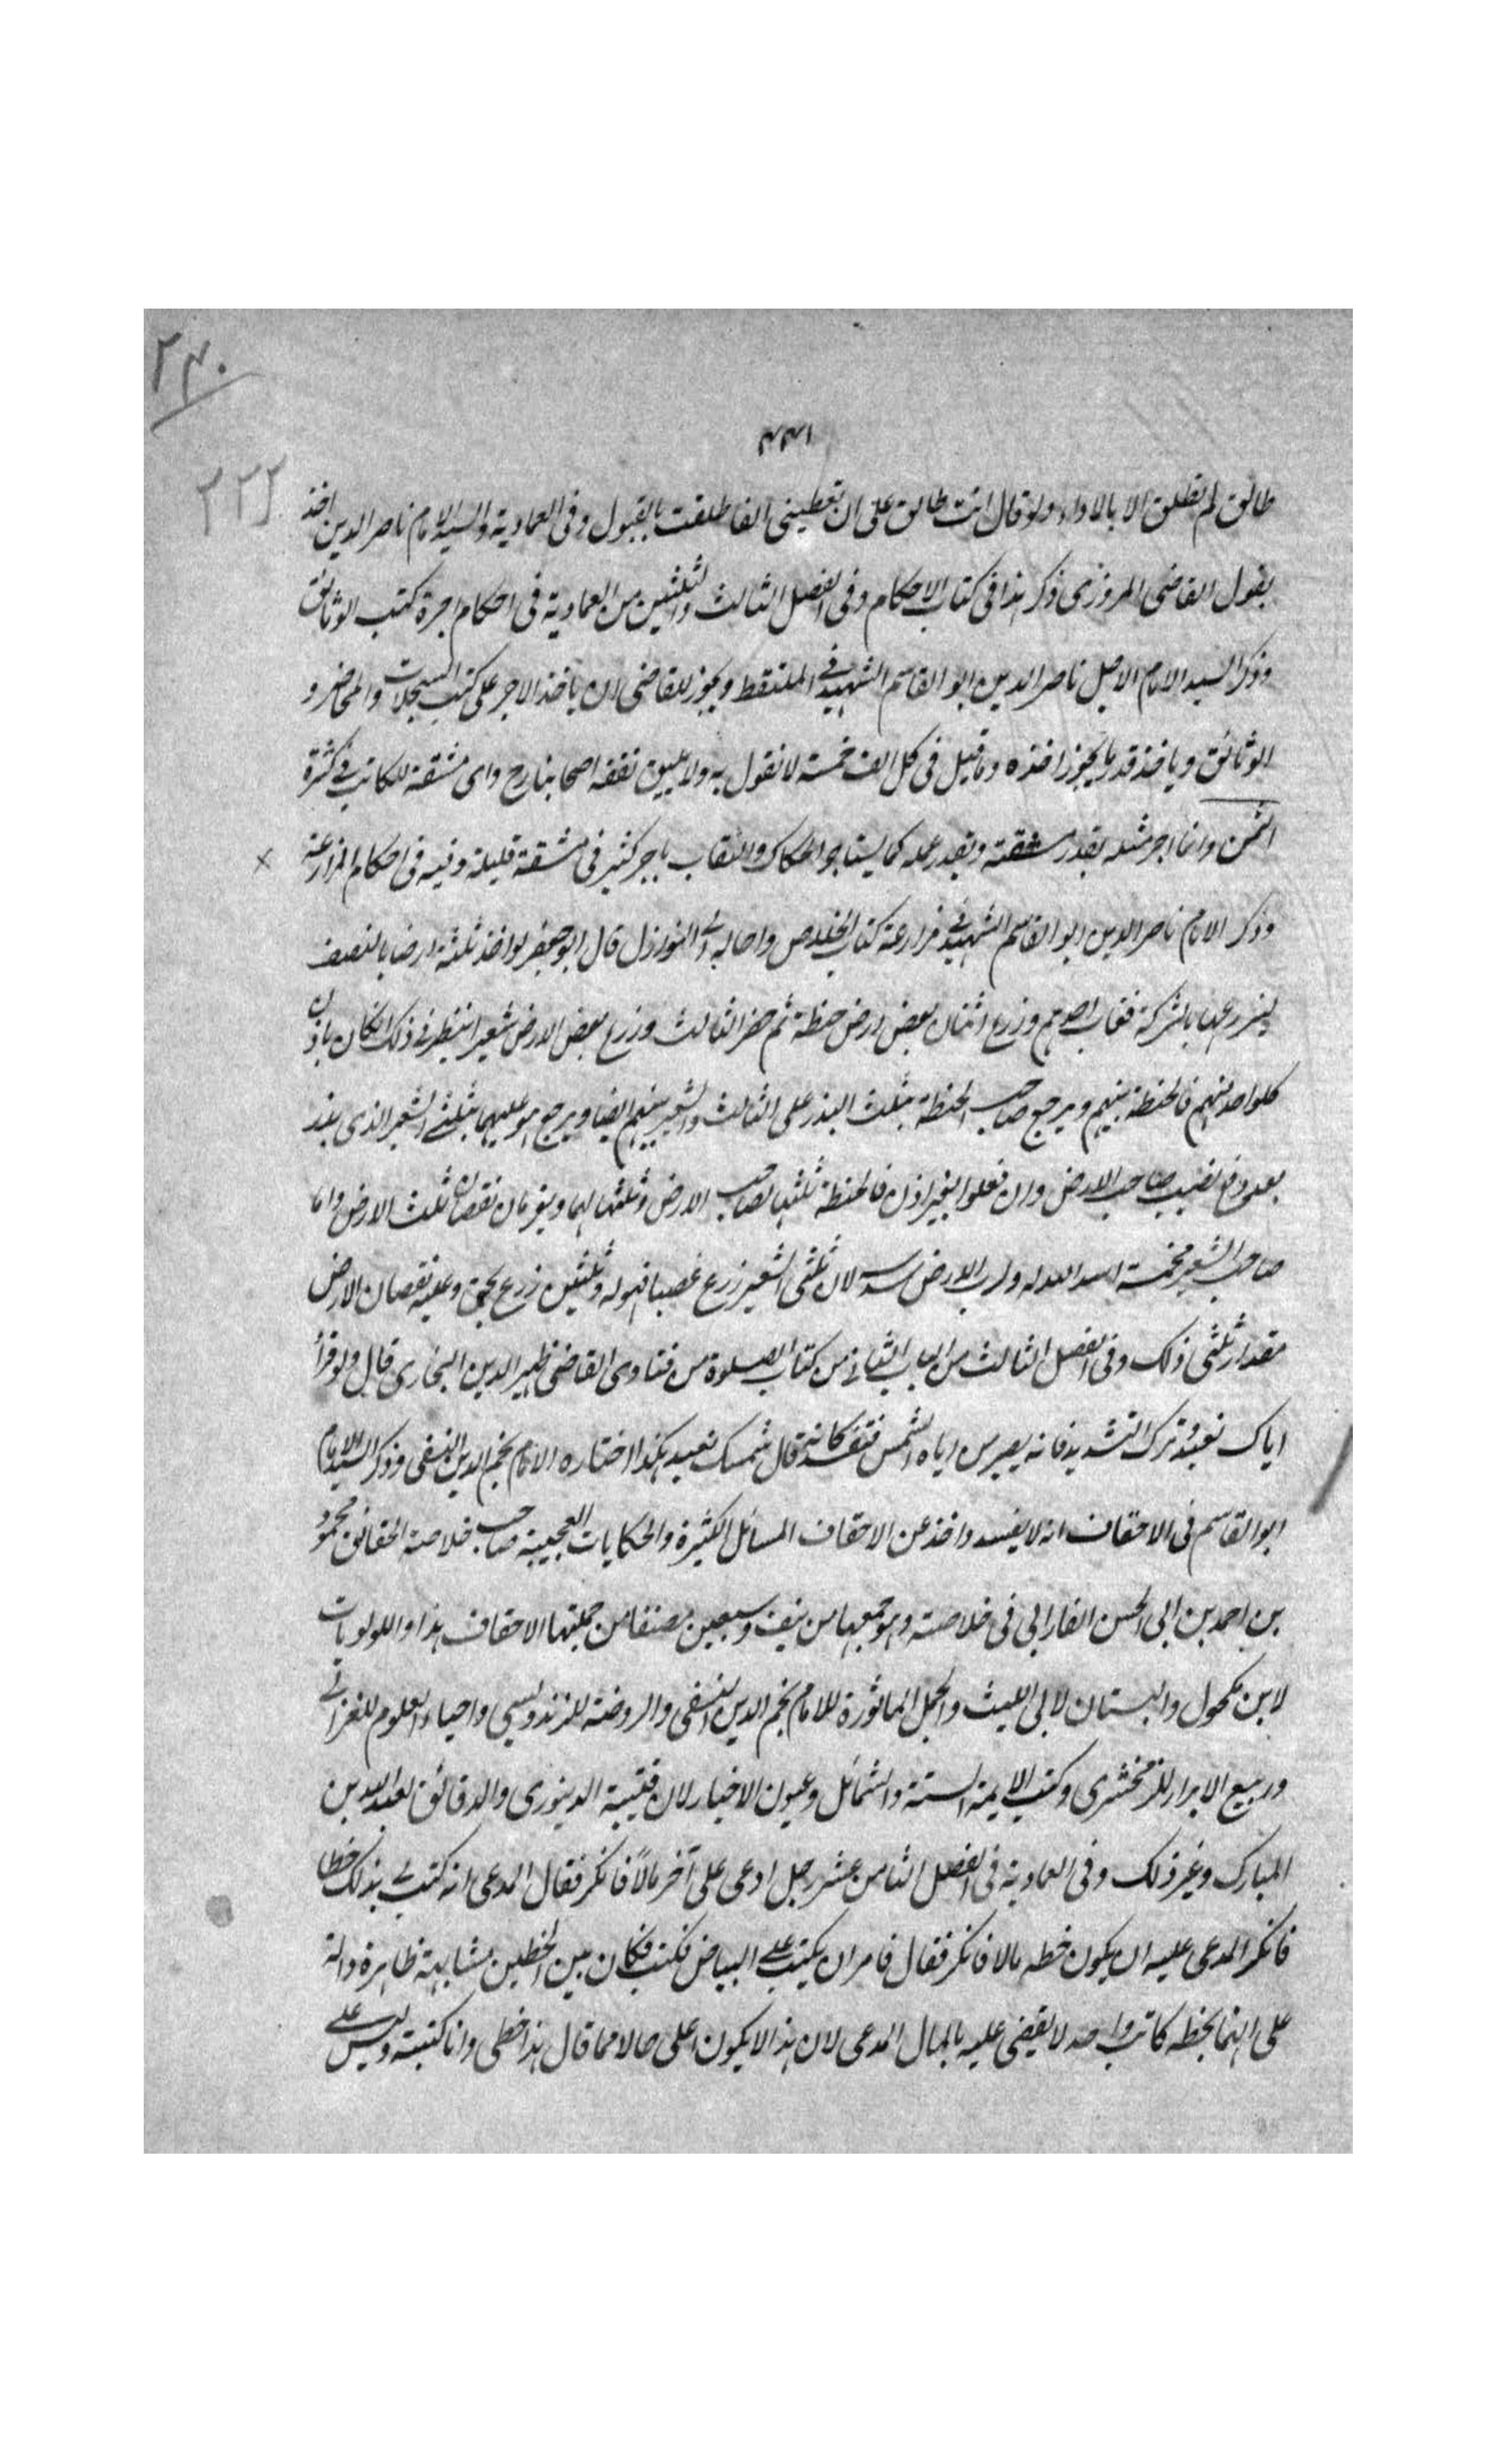 ٢٣٠
٤٤١
٢٢٢
طالق لم تطلق الا بالاداء ولو قال انت طالق على ان تعطينى الفا طلقت بالقبول وفى العمادية والسيد الامام ناصر الدين اخذ
بقول القاضى المروزى ذكر هذا فى كتاب الاحكام وفى الفصل الثالث والثلثين من العمادية فى احكام اجرة كتب الوثائق
وذكر السيد الامام الاجل ناصر الدين ابو القاسم الشهيد فى الملتقط ويجوز للقاضى ان ياخذ الاجر على كتب السجلات والمحاضر و
الوثائق وياخذ قدر ما يجوز اخذه وما قيل فى كل الف خمسة لا نقول به ولا يليق بفقه اصحابنا رح واى مشقة للكاتب فى كثرة
الثمن وانما اجر مثله بقدر مشقته وبقدر عمله كما يستاجر الحكاك والنقاب باجر كثير فى مشقة قليلة وفيه فى احكام المزارعة
وذكر الامام ناصر الدين ابو القاسم الشهيد فى مزارعة كتاب الخلاص واحاله الى النوازل قال ابو جعفر لو اخذ ثلثة ارضا بالنصف
ليزرعها بالشركة فغاب احدهم وزرع اثنان بعض الارض حنطة ثم حضر الثالث وزرع بعض الارض شعيرا ينظر فى ذلك ان كان باذن
كل واحد منهم فالحنطة بينهم ويرجع صاحب الحنطة بثلث البذر على الثالث والشعير بينهم ايضا ويرجع هو عليهما بثلثى الشعير الذى بذر
بعد دفع نصيب صاحب الارض وان فعلوا بغير اذن فالحنطة ثلثها لصاحب الارض وثلثها لهما ويغرمان نقصان ثلث الارض واما
صاحب الشعير فخمسة اسداسه له ولرب الارض سدسه لان ثلثى الشعير زرع غصبا فهو له وثلثين زرع بحق وعليه نقصان الارض
مقدار ثلثى ذلك وفى الفصل الثالث من الباب الثانى من كتاب الصلوة من فتاوى القاضى ظهير الدين البخارى قال ولو قرأ
اياك نعبد وترك التشديد فانه يصير من اياه الشمس فتفسد كانه قال شمسك نعبد هكذا اختاره الامام نجم الدين النسفى وذكر السيد الامام
ابو القاسم فى الاحقاف انه لا يفسد واخذ عن الاحقاف المسائل الكثيرة والحكايات العجيبة صاحب خلاصة الحقائق محمود
بن احمد بن ابى الحسن الفارابى فى خلاصته وهو جمعها من نيف وسبعين مصنفا من جملتها الاحقاف هذا واللولويات
لابن مكحول والبستان لابى الليث والجمل الماثورة للامام نجم الدين النسفى والروضة للزندويسى واحياء العلوم للغزالى
وربيع الابرار للزمخشرى وكتب الايمة الستة والشمائل وعيون الاخبار لابن قتيبة الدينورى والدقائق لعبد الله بن
المبارك وغير ذلك وفى العمادية فى الفصل الثامن عشر رجل ادعى على آخر مالا فانكر فقال المدعى انه كتب لى بذلك خطا
فانكر المدعى عليه ان يكون خطه مالا فانكر فقال فامر ان يكتب على البياض فكتب فكان بين الخطين مشابهة ظاهرة دالة
على انهما بخط كاتب واحد لا يقضى عليه بالمال المدعى لان هذا لا يكون اعلى حالا مما قال هذا خطى وانا كتبته وليس على